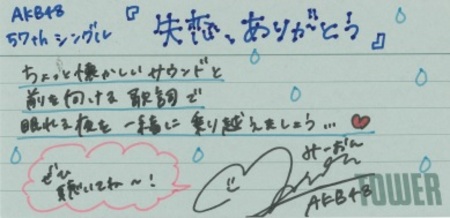 AKB48
57thシングル
『失恋、ありがとう』
ちょっと懐かしいサウンドと
前を向ける歌詞で
眠れる夜を一緒に乗り越えましょう…♥
ぜひ
聴いてね〜!
みーおん
AKB48
TOWER